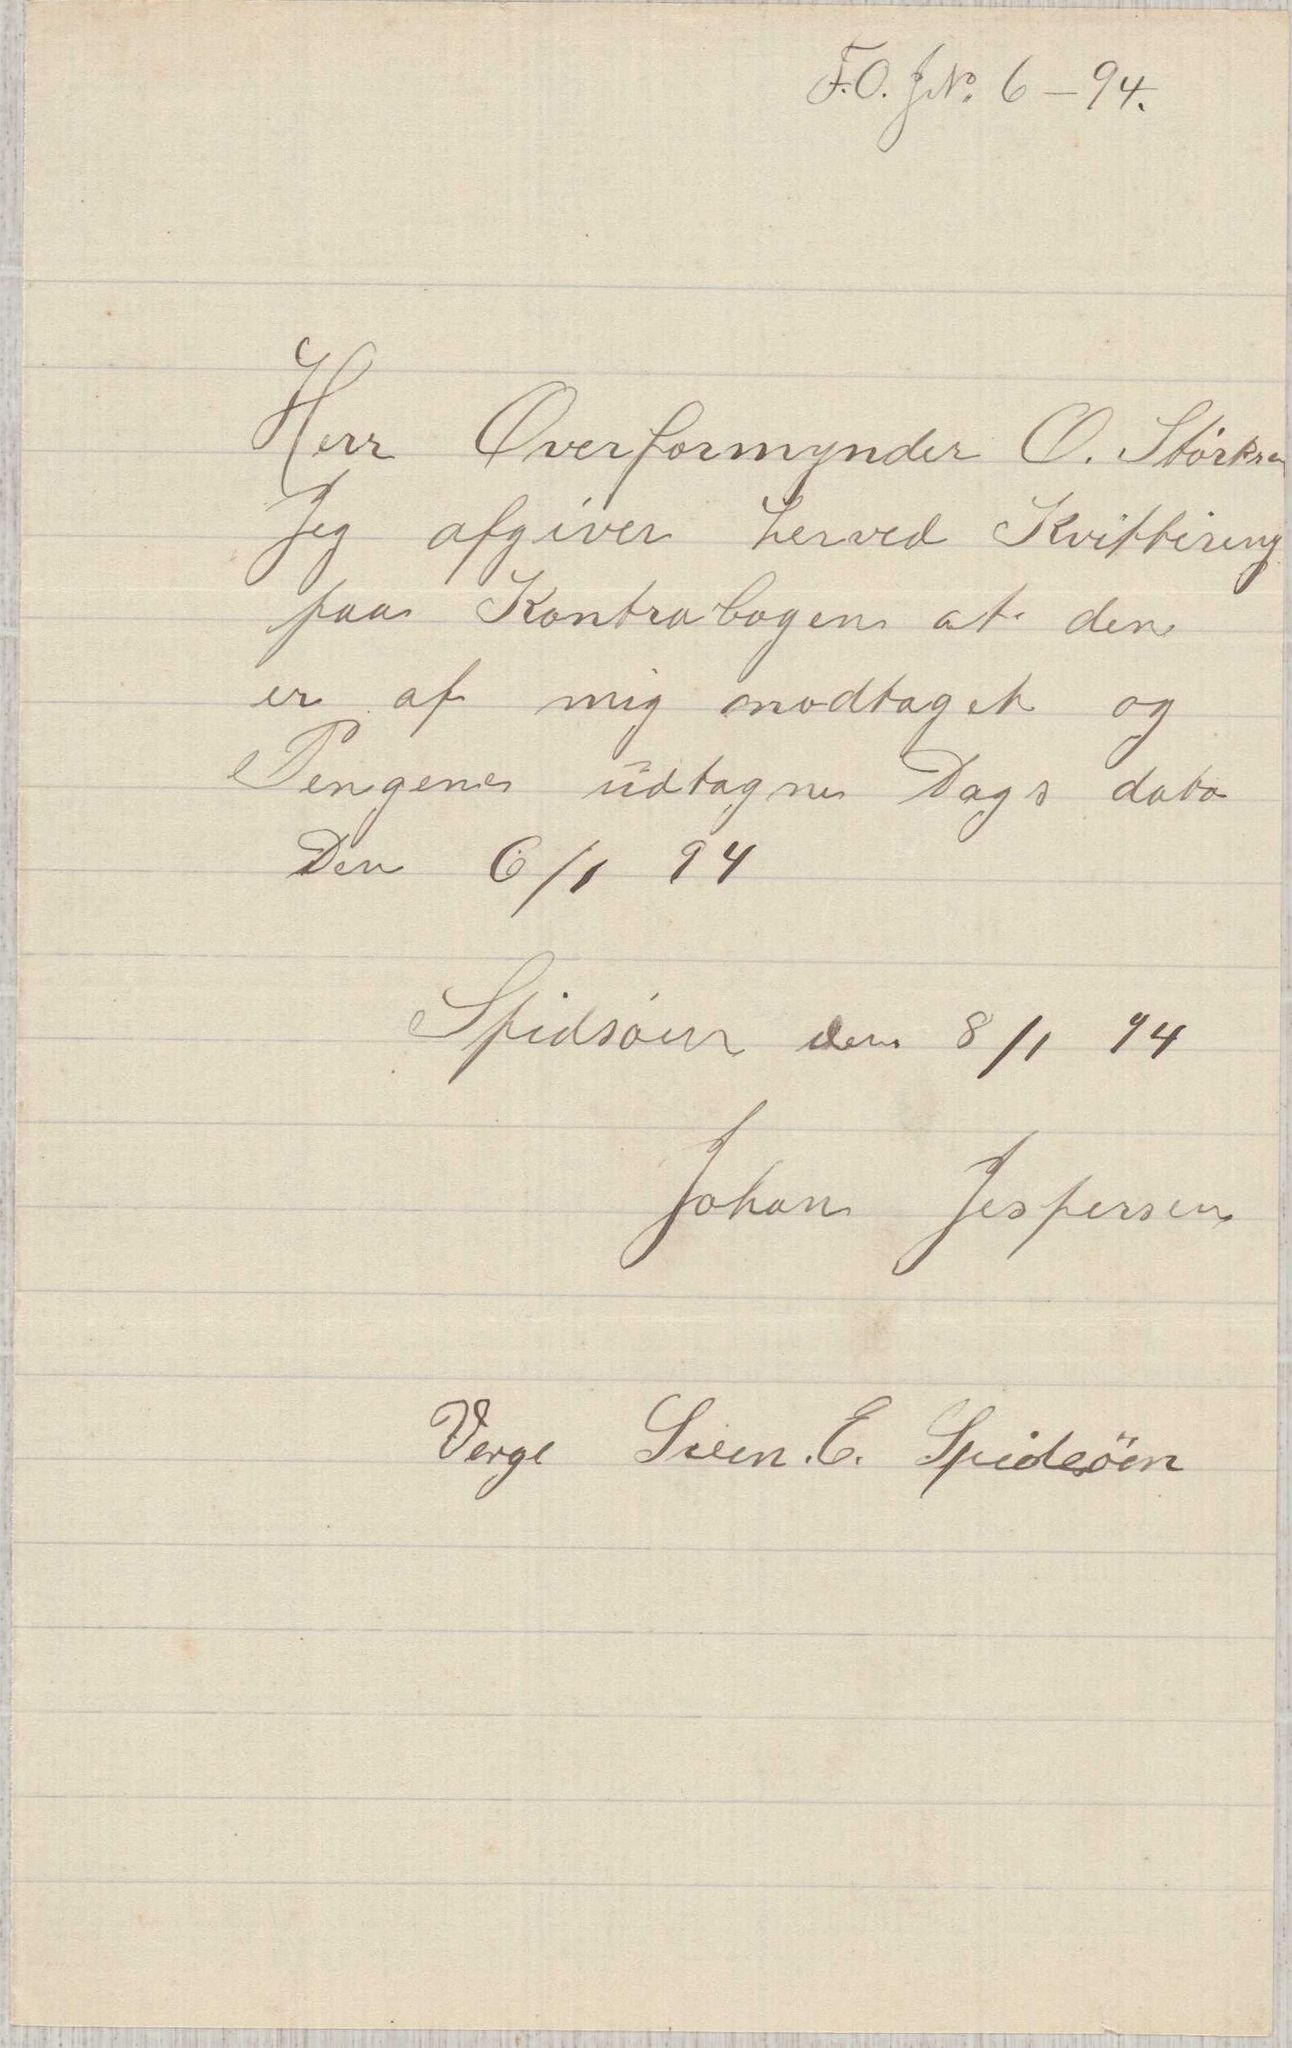 F.O. J.No. 6 – 94.
Herr Overformynder O. Størksen
Jeg afgiver herved Kvittiring
paa Kontrabogen at den
er af mig modtaget og
Pengene üdtagne Dags dato
Den 6/1 94
Spidsøen den 8/1 94
Johan Jespersen
Verge Sven. E. Spidsöen